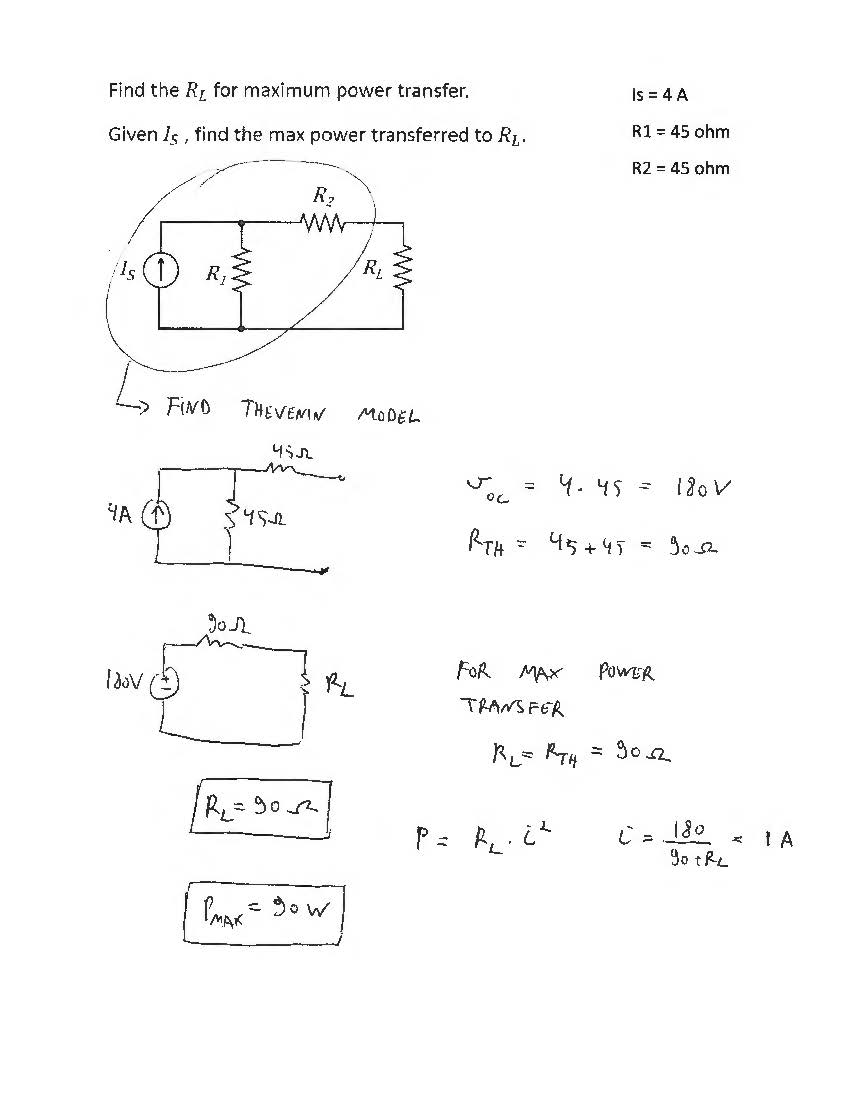 Find the R_L for maximum power transfer.
Is = 4 A
Given I_S , find the max power transferred to R_L.
R1 = 45 ohm
R2 = 45 ohm
R_2
I_S
R_1
R_L
→ FIND THEVENIN MODEL
45Ω
4A
45Ω
v_oc = 4 . 45 = 180 V
R_TH = 45 + 45 = 90 Ω
90Ω
180V
R_L
FOR MAX POWER
TRANSFER
R_L = R_TH = 90 Ω
R_L = 90 Ω
P = R_L . i²
i = 180 / 90 + R_L = 1 A
P_MAX = 90 W